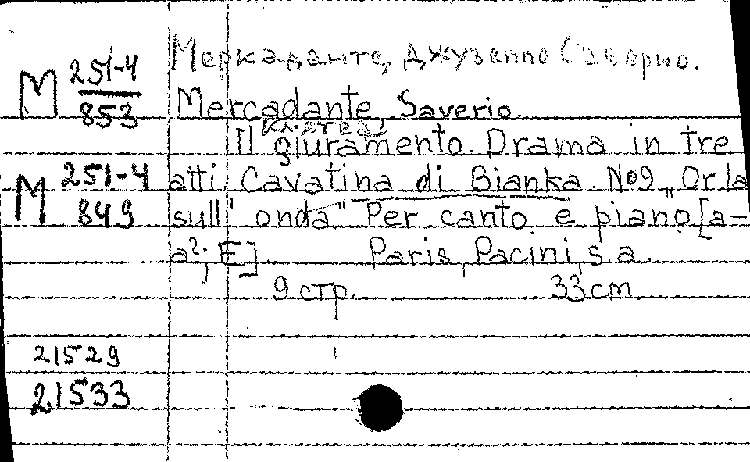 Меркаданте, Джузеппе Саверио.
М 251-4
853
Mercadante, Saverio.
Клятва
Il giuramento. Drama in tre
М 251-4
849
atti. Cavatina di Bianka №9 „Or la
sull' onda" Per canto e piano [a-
a²; E]. Paris, Pacini, s a.
9 стр. 33 cm
21529
21533